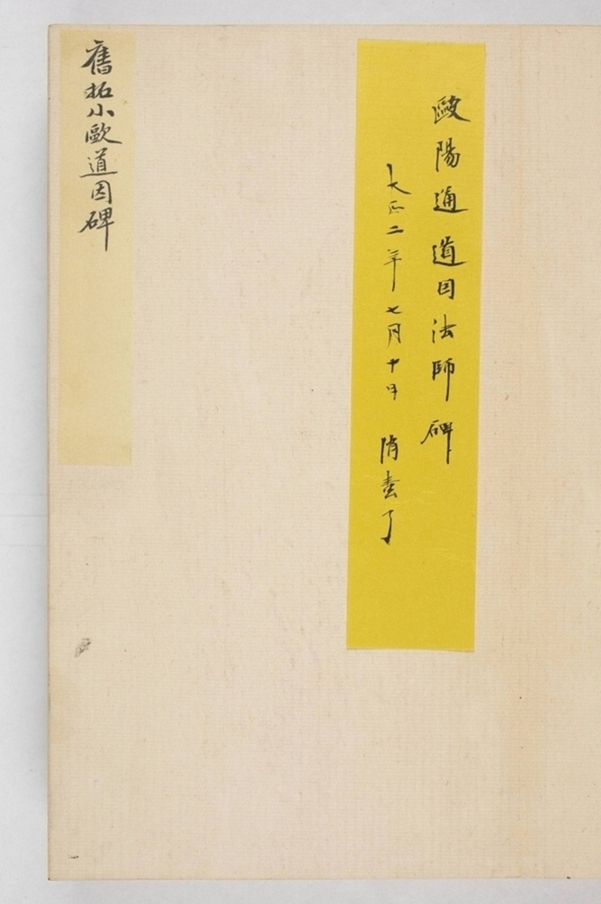 歐陽通 道因法師碑
大正二年七月十日 消毒了
舊拓小歐道因碑